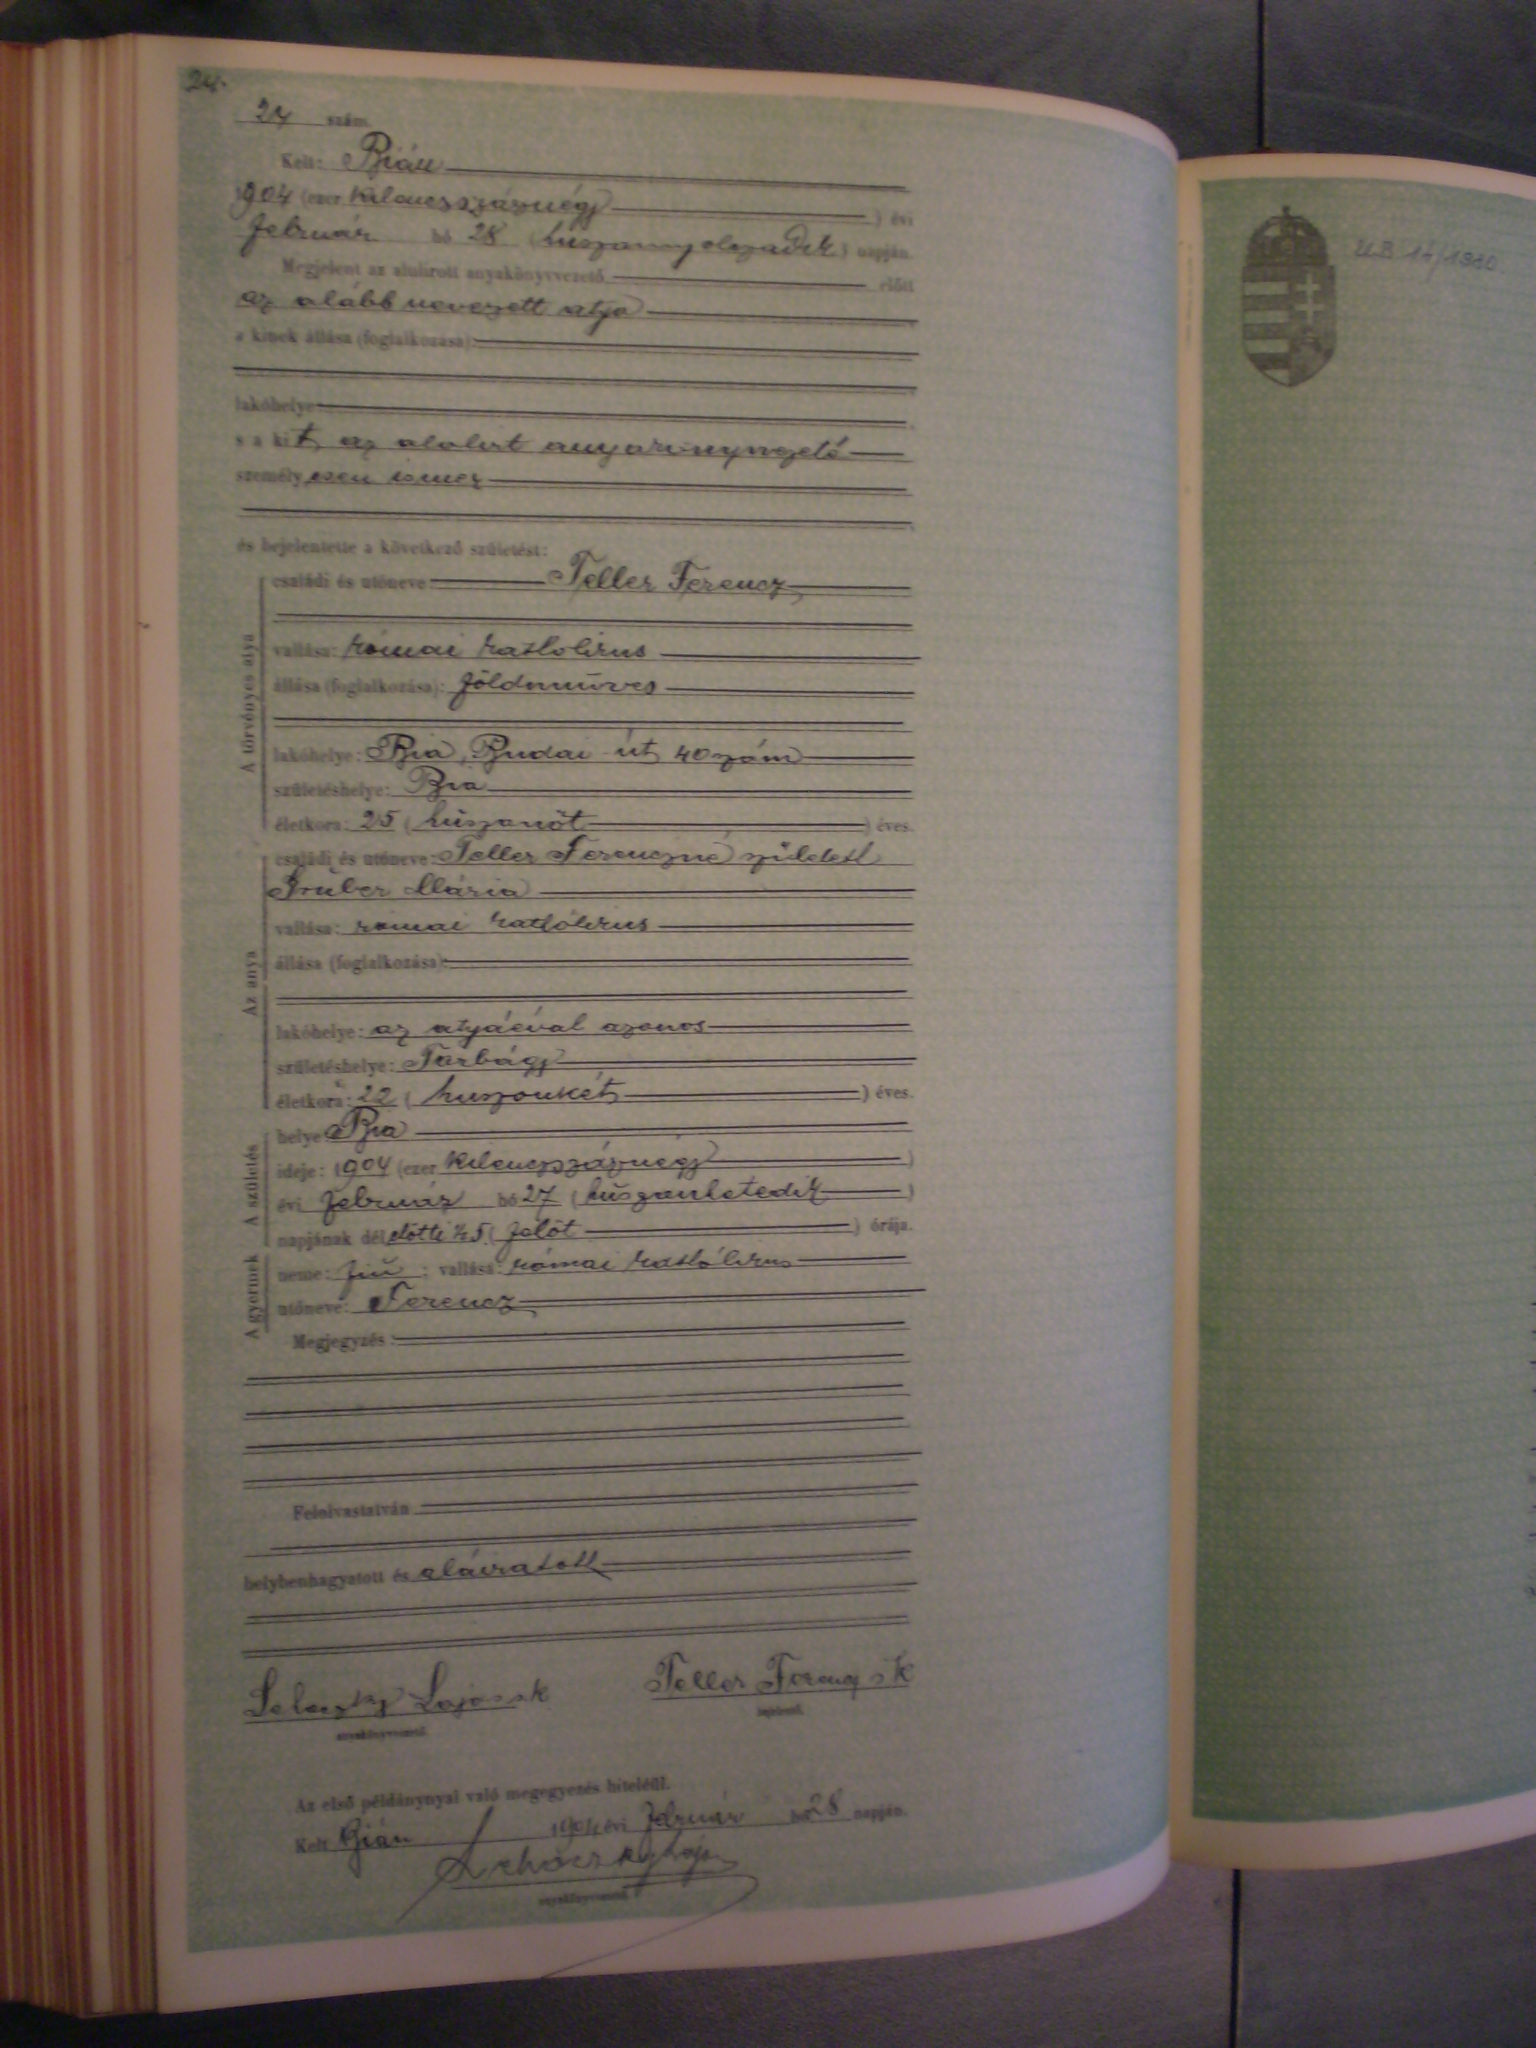 24.
24 szám.
Kelt: Bián
1904 (ezer kilenczszáznégy) évi
február hó 28 (huszonnyolczadik) napján.
Megjelent az alulirott anyakönyvvezető előtt
az alább nevezett atya
a kinek állása (foglalkozása):
lakóhelye
s a kit az alulirt anyakönyvvezető
személyesen ismer
és bejelentette a következő születést:
A törvényes atya
családi és utóneve: Teller Ferencz
vallása: római katholikus
állása (foglalkozása): földmüves
lakóhelye: Bia, Budai út 40 szám
születéshelye: Bia
életkora: 25 (huszonöt) éves.
Az anya
családi és utóneve: Teller Ferenczné született
Gruber Mária
vallása: római katholikus
állása (foglalkozása):
lakóhelye: az atyáéval azonos
születéshelye: Torbágy
életkora: 22 (huszonkét) éves.
A születés
helye: Bia
ideje: 1904 (ezer kilenczszáznégy)
évi február hó 27 (huszonhetedik)
napjának délelőtti ½5 (felöt) órája.
A gyermek
neme: fiú; vallása: római katholikus
utóneve: Ferencz
Megjegyzés:
Felolvastatván
helybenhagyatott és aláiratott
Lajos sk Teller Ferencz sk
anyakönyvvezető. bejelentő.
Az első példánynyal való megegyezés hiteléül.
Kelt Bián 1904 évi február hó 28 napján.
anyakönyvvezető.
U.B 14/1980.